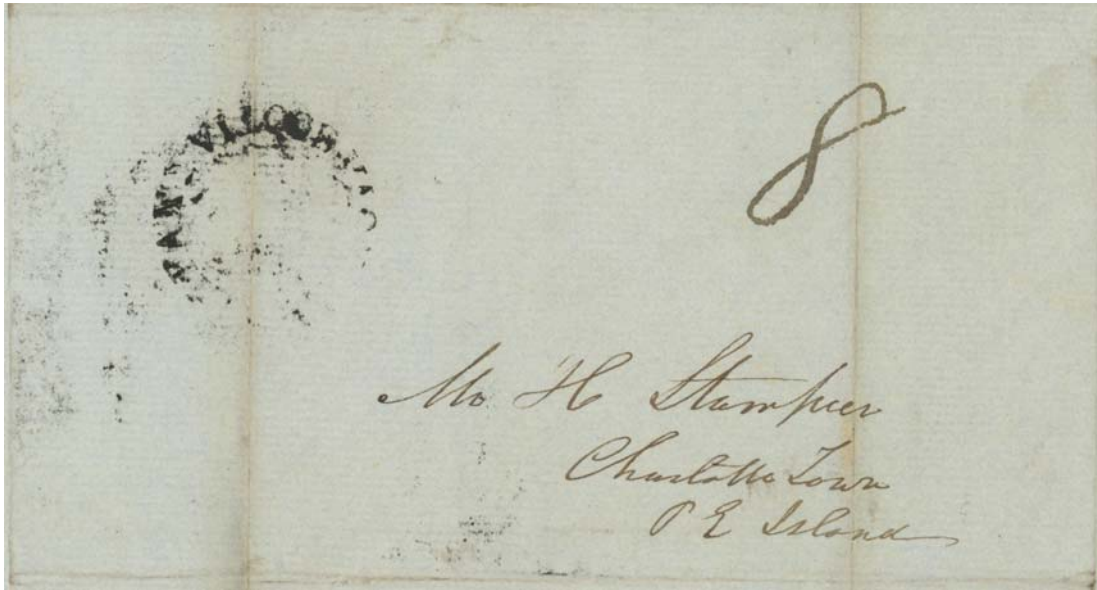 8
Mr H Stamper
Charlotte Town
P E Island